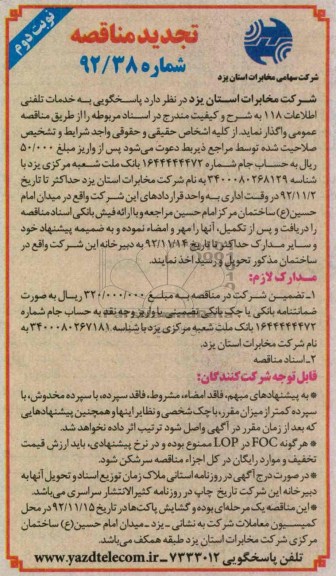 نوبت دوم
تجدید مناقصه
شماره ۹۲/۳۸
شرکت سهامی مخابرات استان یزد
شرکت مخابرات استان یزد در نظر دارد پاسخگویی به خدمات تلفنی
اطلاعات ۱۱۸ به شرح و کیفیت مندرج در اسناد مربوطه را از طریق مناقصه
عمومی واگذار نماید. از کلیه اشخاص حقیقی و حقوقی واجد شرایط و تشخیص
صلاحیت شده توسط مراجع ذیربط دعوت می‌شود پس از واریز مبلغ ۵۰/۰۰۰
ریال به حساب جام شماره ۱۶۴۴۴۴۴۴۷۲ بانک ملت شعبه مرکزی یزد با
شناسه ۳۴۰۰۰۸۰۲۶۸۱۲۹ به نام شرکت مخابرات استان یزد حداکثر تا تاریخ
۹۲/۱۱/۲ در وقت اداری به واحد قراردادهای این شرکت واقع در میدان امام
حسین(ع) ساختمان مرکز امام حسین مراجعه و با ارائه فیش بانکی اسناد مناقصه
را دریافت و پس از تکمیل، آنها را مهر و امضاء نموده و به ضمیمه پیشنهاد خود
و سایر مدارک حداکثر تا تاریخ ۹۲/۱۱/۱۴ به دبیرخانه این شرکت واقع در
ساختمان مذکور تحویل و رسید اخذ نمایند.
مدارک لازم:
۱ـ تضمین شرکت در مناقصه به مبلغ ۳۲۰/۰۰۰/۰۰۰ ریال به صورت
ضمانتنامه بانکی یا چک بانکی تضمینی یا واریز وجه نقد به حساب جام شماره
۱۶۴۴۴۴۴۴۷۲ بانک ملت شعبه مرکزی یزد با شناسه ۳۴۰۰۰۸۰۲۶۷۱۸۱ به
نام شرکت مخابرات استان یزد.
۲ـ اسناد مناقصه
قابل توجه شرکت‌کنندگان:
* به پیشنهادهای مبهم، فاقد امضاء، مشروط، فاقد سپرده، با سپرده مخدوش، با
سپرده کمتر از میزان مقرر، با چک شخصی و نظایر اینها و همچنین پیشنهادهایی
که بعد از زمان مقرر در آگهی واصل شود ترتیب اثر داده نخواهد شد.
* هر گونه FOC در LOP ممنوع بوده و در نرخ پیشنهادی، باید ارزش قیمت
تخفیف و موارد رایگان در کل اجزاء مناقصه سرشکن شود.
* در صورت درج آگهی در روزنامه استانی ملاک زمان توزیع اسناد و تحویل آنها به
دبیرخانه این شرکت تاریخ چاپ در روزنامه کثیرالانتشار سراسری می‌باشد.
* این مناقصه یک مرحله‌ای بوده و گشایش پاکت‌ها در تاریخ ۹۲/۱۱/۱۵ در محل
کمیسیون معاملات شرکت به نشانی ـ یزد ـ میدان امام حسین(ع) ساختمان
مرکزی مخابرات استان یزد طبقه همکف می‌باشد.
تلفن پاسخگویی ۷۲۳۳۰۱۲ ـ www.yazdtelecom.ir